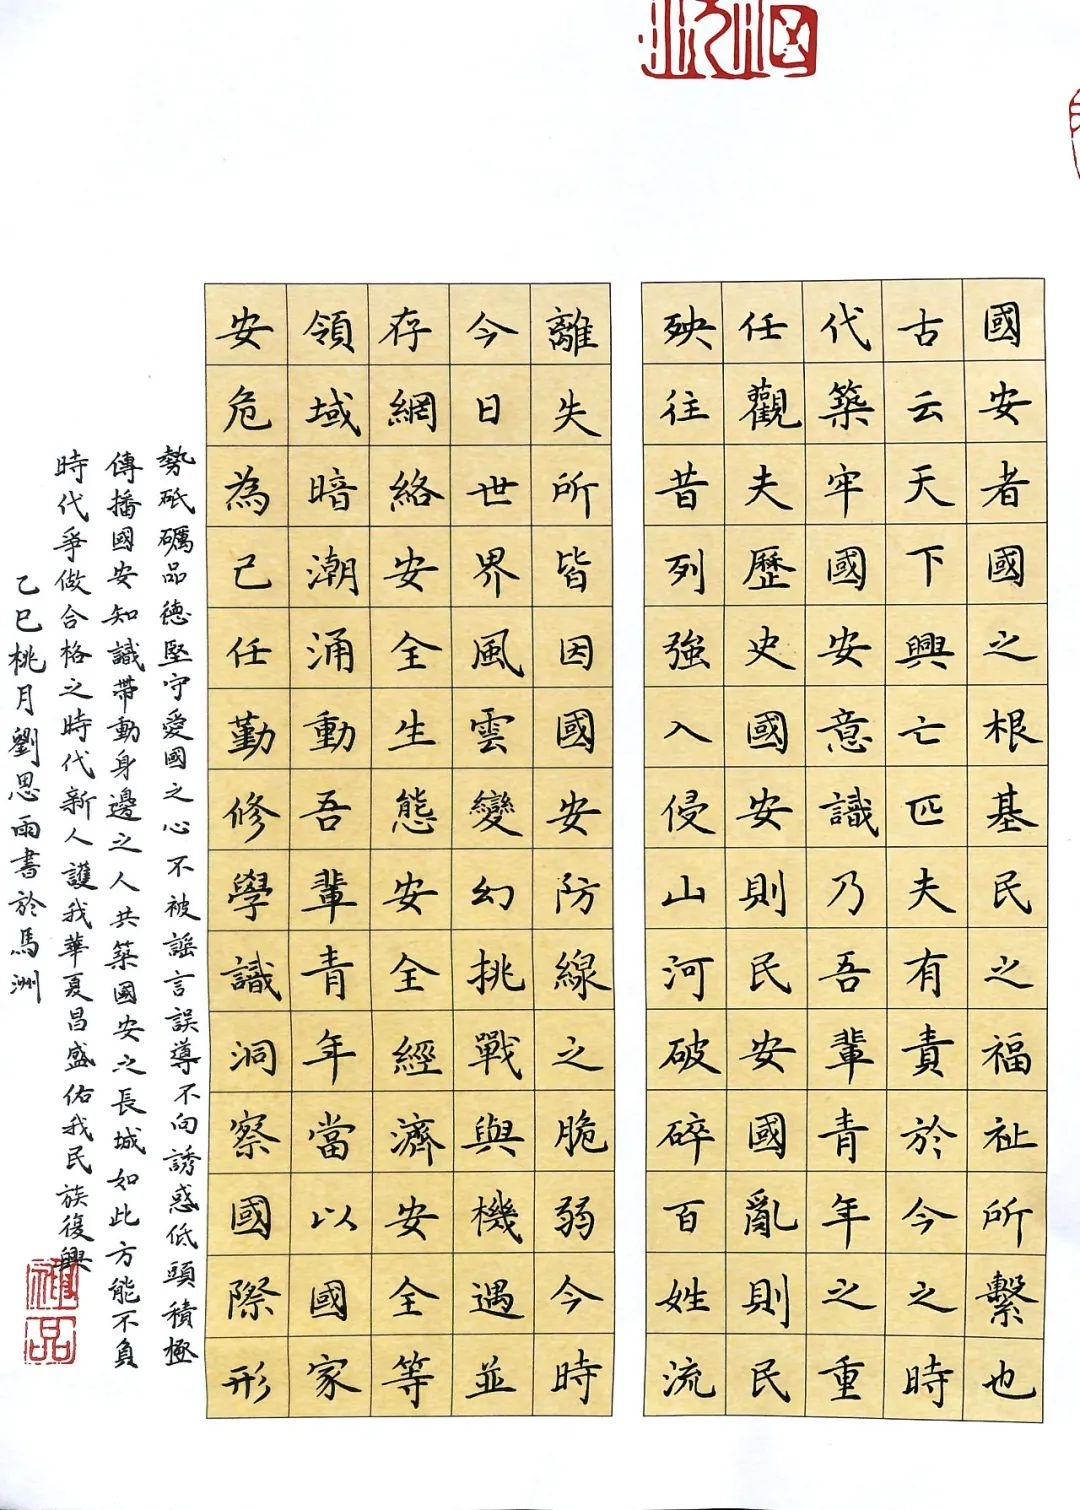 國安者國之根基民之福祉所繫也
古云天下興亡匹夫有責於今之時
代築牢國安意識乃吾輩青年之重
任觀夫歷史國安則民安國亂則民
殃往昔列強入侵山河破碎百姓流
離失所皆因國安防線之脆弱今時
今日世界風雲變幻挑戰與機遇並
存網絡安全生態安全經濟安全等
領域暗潮涌動吾輩青年當以國家
安危為己任勤修學識洞察國際形
勢砥礪品德堅守愛國之心不被謠言誤導不向誘惑低頭積極
傳播國安知識帶動身邊之人共築國安之長城如此方能不負
時代爭做合格之時代新人護我華夏昌盛佑我民族復興
乙巳桃月劉思雨書於馬洲